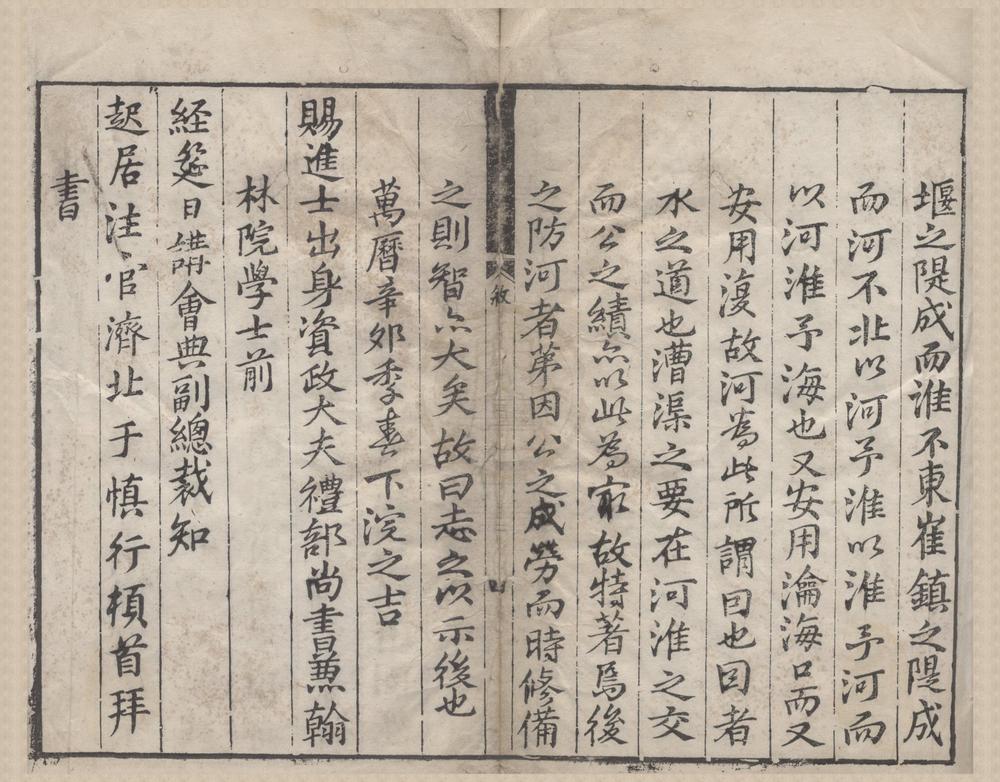 堰之隄成而淮不東崔鎮之隄成
而河不北以河予淮以淮予河而
以河淮予海也又安用瀹海口而又
安用復故河為此所謂因也因者
水之道也漕渠之要在河淮之交
而公之績亦以此為最故特著焉後
之防河者第因公之成勞而時修備
敘
四
之則智亦大矣故曰志之以示後也
萬曆辛卯季春下浣之吉
賜進士出身資政大夫禮部尚書兼翰
林院學士前
經筵日講會典副總裁知
起居注官濟北于慎行頓首拜
書